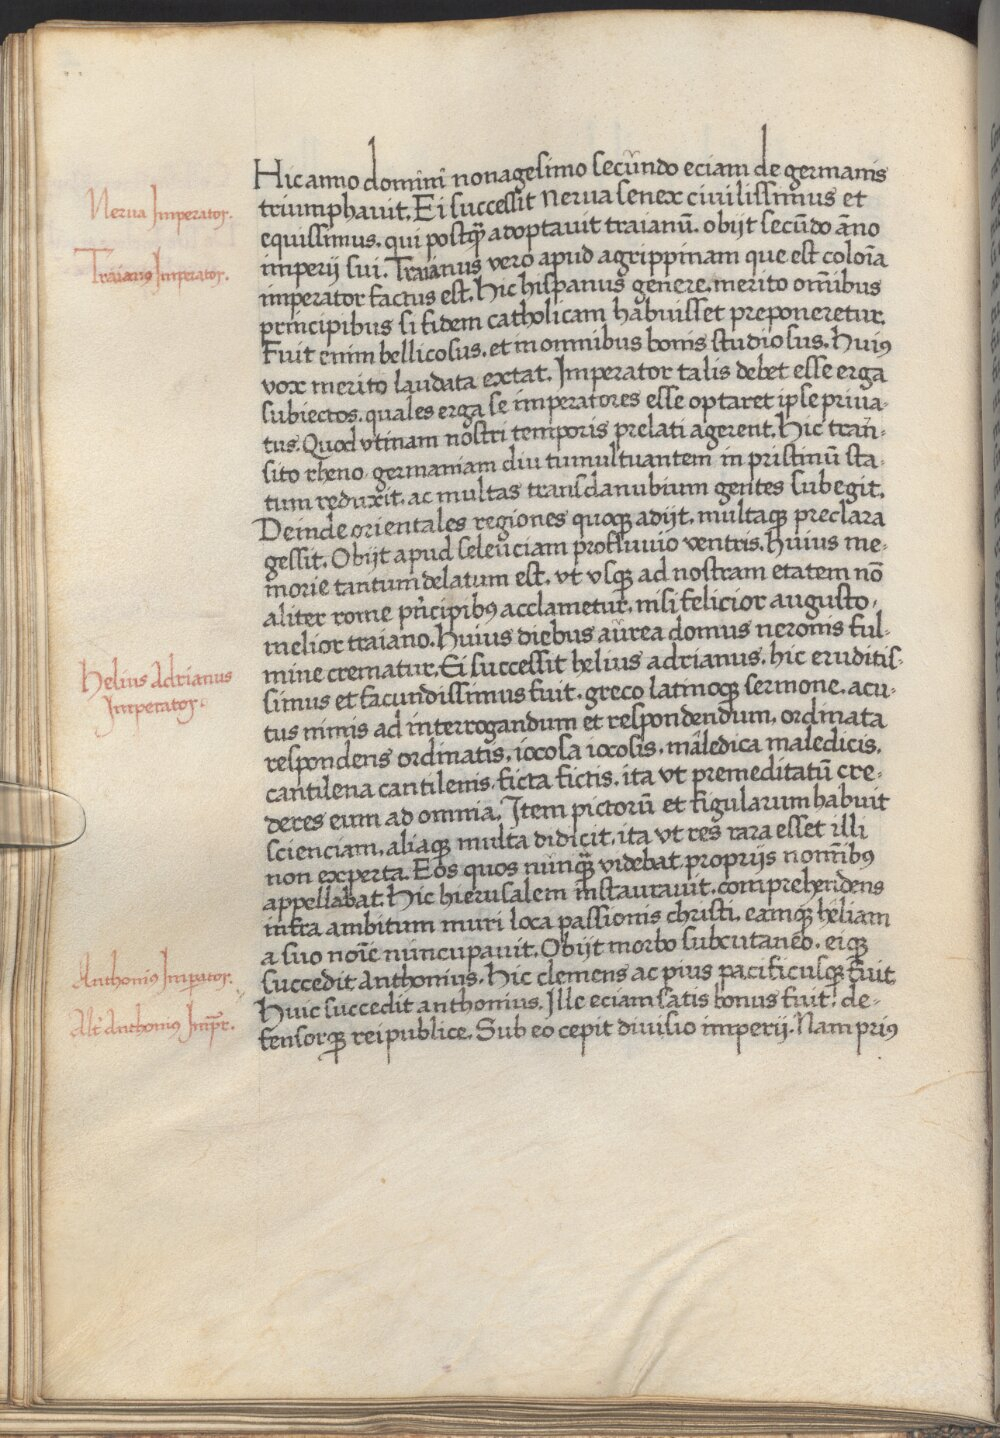 Hic anno domini nonagesimo secundo eciam de germanis
triumphavit. Ei successit Nerua senex ciuilissimus et
Nerua Imperator.
equissimus. qui postqȝ adoptavit traianū. obijt secūdo āno
imperij sui. Traianus vero apud agrippinam que est coloīa
Traianus Imperator.
imperator factus est. Hic hispanus genere. merito om̄ibus
principibus si fidem catholicam habuisset preponeretur.
Fuit enim bellicosus. et in omnibus bonis studiosus. Huiꝰ
vox merito laudata extat. Imperator talis debet esse erga
subiectos. quales erga se imperatores esse optaret ipse priua-
tus. Quod vtinam nostri temporis prelati agerent. Hic tran-
sito rheno germaniam diu tumultuantem in pristinū sta-
tum reduxit. ac multas transdanubium gentes subegit.
Deinde orientales regiones quoqȝ adijt. multaqȝ preclara
gessit. Obijt apud seleuciam profluuio ventris. Huius me-
morie tantum delatum est. vt vsqȝ ad nostram etatem nō
aliter rome pr̄icipibꝰ acclametur. nisi felicior augusto,
melior traiano. Huius diebus aurea domus neronis ful-
mine crematur. Ei successit helius adrianus. hic eruditis-
Helius Adrianus
Imperator.
simus et facundissimus fuit. greco latinoqȝ sermone. acu-
tus nimis ad interrogandum et respondendum. ordinata
respondens ordinatis. iocosa iocosis. maledica maledicis.
cantilena cantilenis. ficta fictis. ita vt premeditatū cre-
deres eum ad omnia. Item pictorū et figularum habuit
scienciam, aliaqȝ multa didicit. ita vt res rara esset illi
non experta. Eos quos nunqȝ videbat proprijs nom̄ibꝰ
appellabat. Hic hierusalem instaurauit. comprehendens
infra ambitum muri loca passionis christi. eamqȝ heliam
a suo noīe nuncupauit. Obijt morbo subcutaneo. eiqȝ
succedit Anthonius. Hic clemens ac pius pacificusqȝ fuit
Anthoniꝰ Impator.
Huic succedit anthonius. Ille eciam satis bonus fuit. de-
Alt' Anthoniꝰ Imp̄r.
fensorqȝ reipublice. Sub eo cepit diuisio imperij. Nam priꝰ